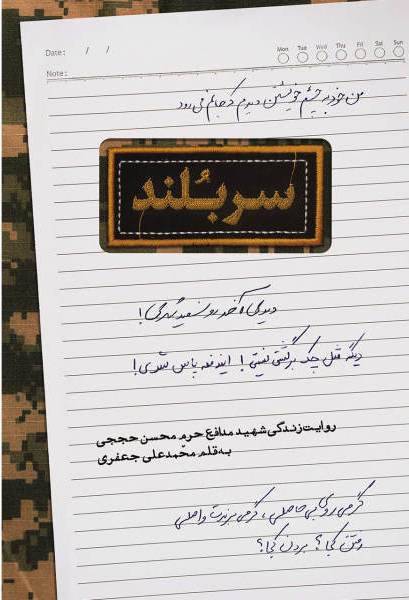 Date: / /
Mon Tue Wed Thu Fri Sat Sun
Note:
من خود به چشم خویشتن دیدم که جانم می‌رود
سربلند
دیدی آخر رو سفید شدی!
دیگه مثل چک برگشتی نیستی! ایندفعه پاس شدی!
روایت زندگی شهید مدافع حرم محسن حججی
به قلم محمدعلی جعفری
گر می‌روی بی‌حاصلی، گر می‌برندت واصلی
رفتن کجا؟ بردن کجا؟